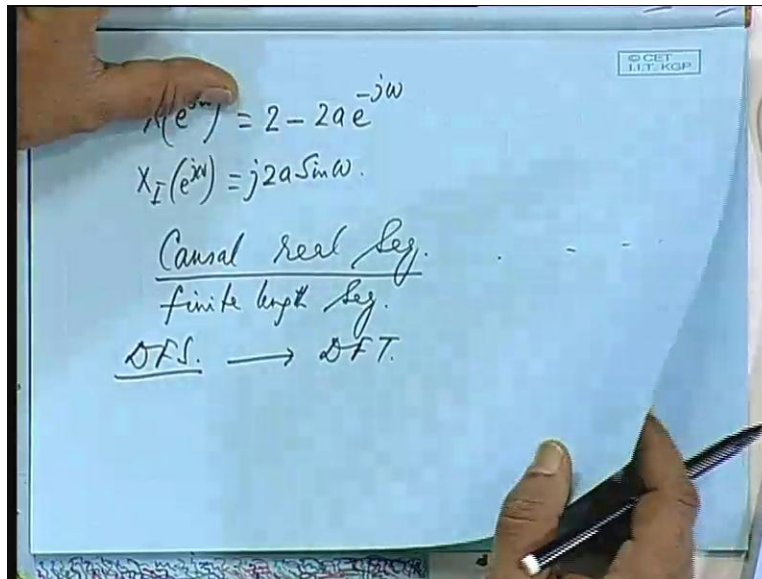 © CET
I.I.T. KGP
X(e^{jω}) = 2 - 2a e^{-jω}
X_I(e^{jω}) = j2a Sinω.
Causal real Seq.
finite length Seq.
DFS. → DFT.